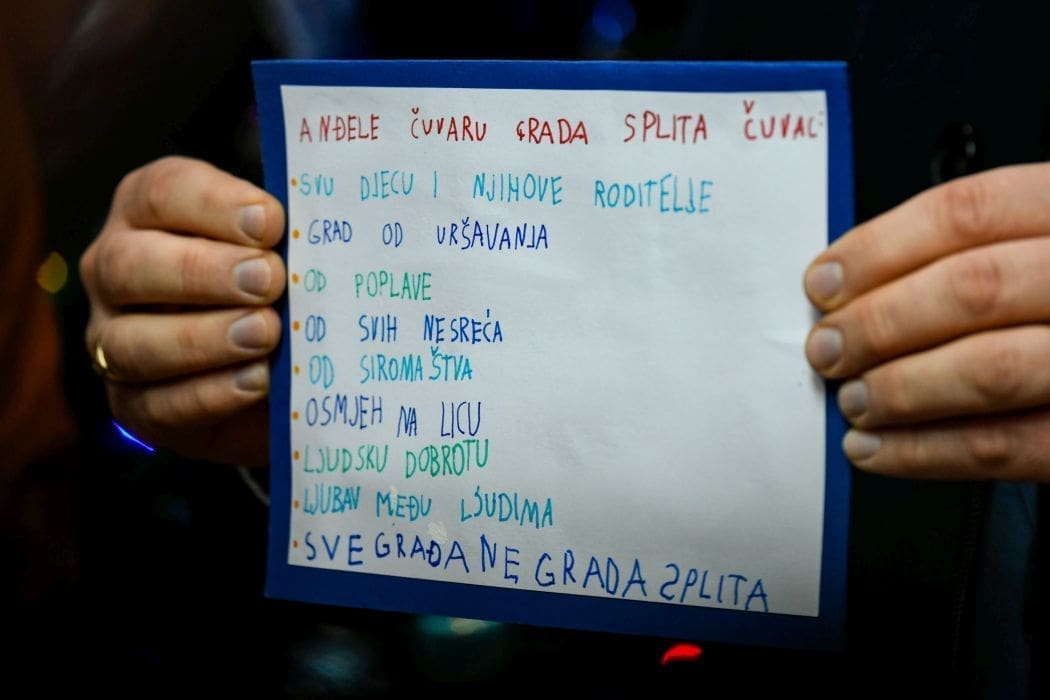 ANĐELE ČUVARU GRADA SPLITA ČUVAJ:
• SVU DJECU I NJIHOVE RODITELJE
• GRAD OD URŠAVANJA
• OD POPLAVE
• OD SVIH NESREĆA
• OD SIROMAŠTVA
• OSMJEH NA LICU
• LJUDSKU DOBROTU
• LJUBAV MEĐU LJUDIMA
• SVE GRAĐANE GRADA SPLITA